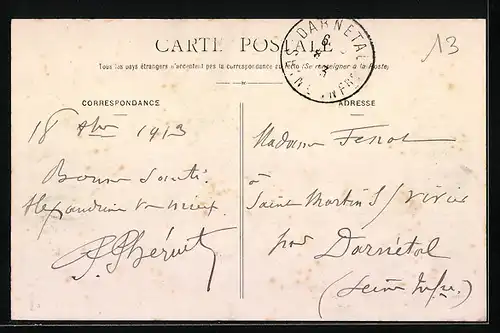 CARTE POSTALE
Tous les pays étrangers n'acceptent pas la correspondance au recto (Se renseigner à la Poste)
DARNETAL
SEINE INFRE
13
CORRESPONDANCE
18 1913
Bonne Santé
Alexandrine va mieux
ADRESSE
Madame
à
Saint Martin S/ Vivier
par Darnétal
(Seine Infre.)